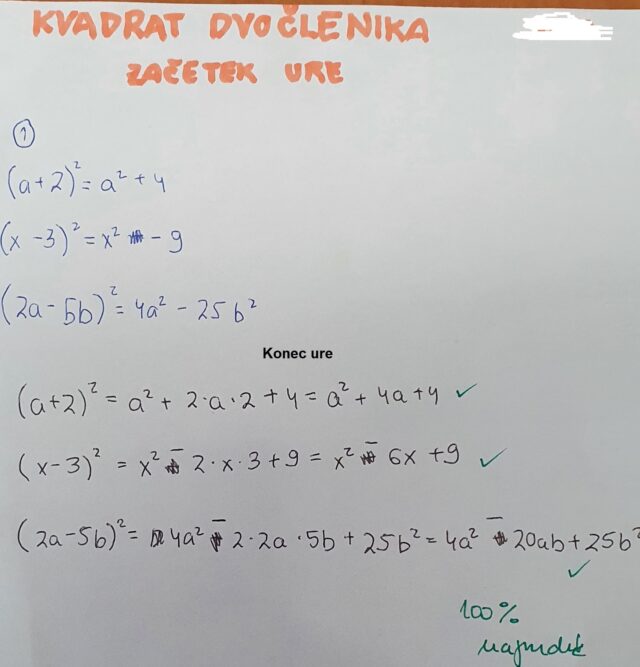 KVADRAT DVOČLENIKA
ZAČETEK URE
1
(a+2)² = a² + 4
(x - 3)² = x² - 9
(2a - 5b)² = 4a² - 25b²
Konec ure
(a+2)² = a² + 2·a·2 + 4 = a² + 4a + 4 ✓
(x-3)² = x² - 2·x·3 + 9 = x² - 6x + 9 ✓
(2a-5b)² = 4a² - 2·2a·5b + 25b² = 4a² - 20ab + 25b² ✓
100%